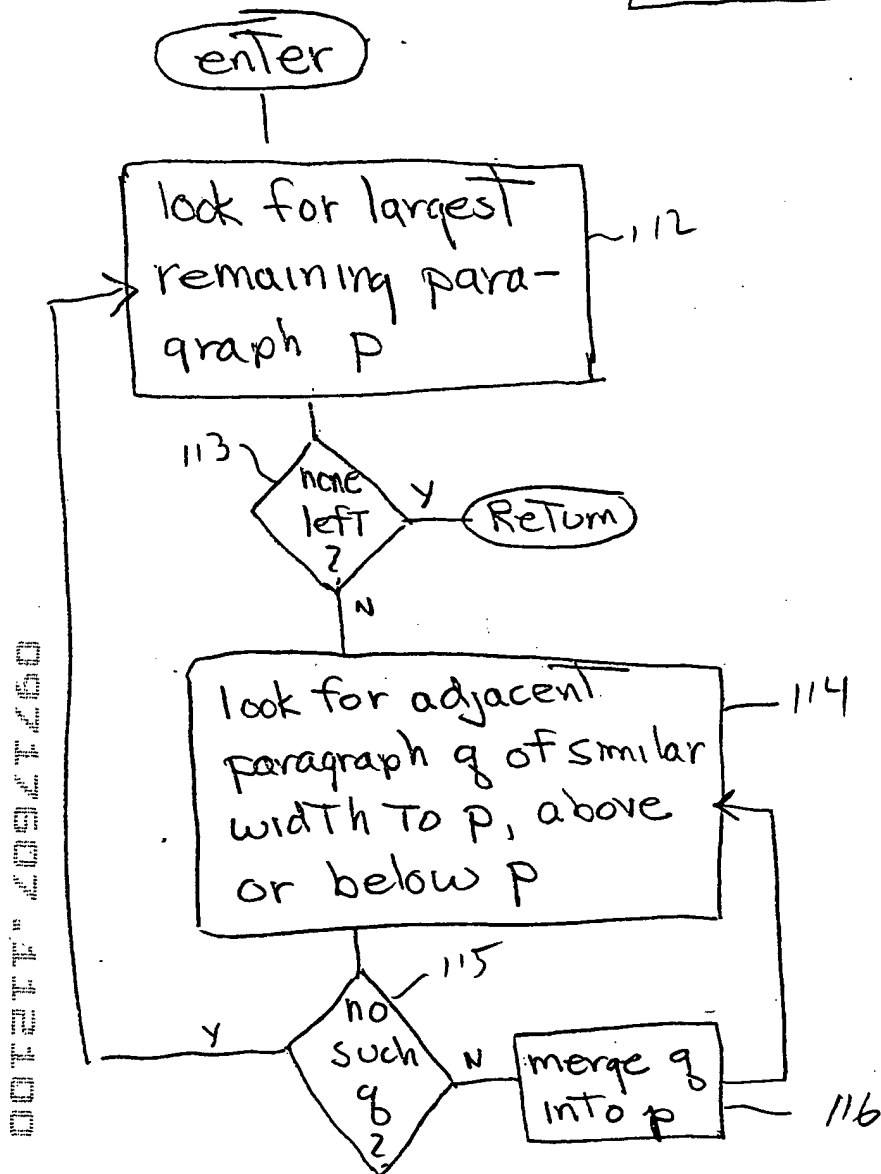 enTer
look for largest
remaining para-
graph p
112
113
none
left
?
Y
Return
N
look for adjacent
paragraph q of similar
width To p, above
or below p
114
115
no
such
q
?
Y
N
merge q
inTo p
116
09717607.112100